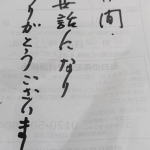 間
世話になり
りがとうございます